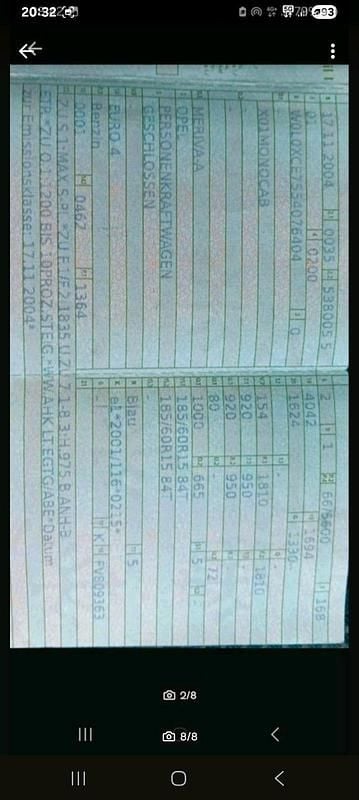 20:32
93
17.11.2004
0035
538005 5
01
0200
0
X01MONOCAB
MERIVA-A
OPEL
PERSONENKRAFTWAGEN
GESCHLOSSEN
EURO 4
Benzin
0001
0467
1364
ZU S.1:MAX.S.PL.*ZU F.1/F.2:1835 U.ZU 7.1-8.3:H.975 B.ANH-B
ETR*ZU O.1:1200 BIS 10PROZ.STEIG.*WW.AHK LT.EGTG/ABE*Datum
zur Emissionsklasse: 17.11.2004*
2
1
66/5600
168
4042
1694
1624
1330
154
1810
1810
920
950
920
950
80
72
1000
665
5
185/60R15 84T
185/60R15 84T
Blau
5
e1*2001/116*0215*
K
FV809363
2/8
8/8